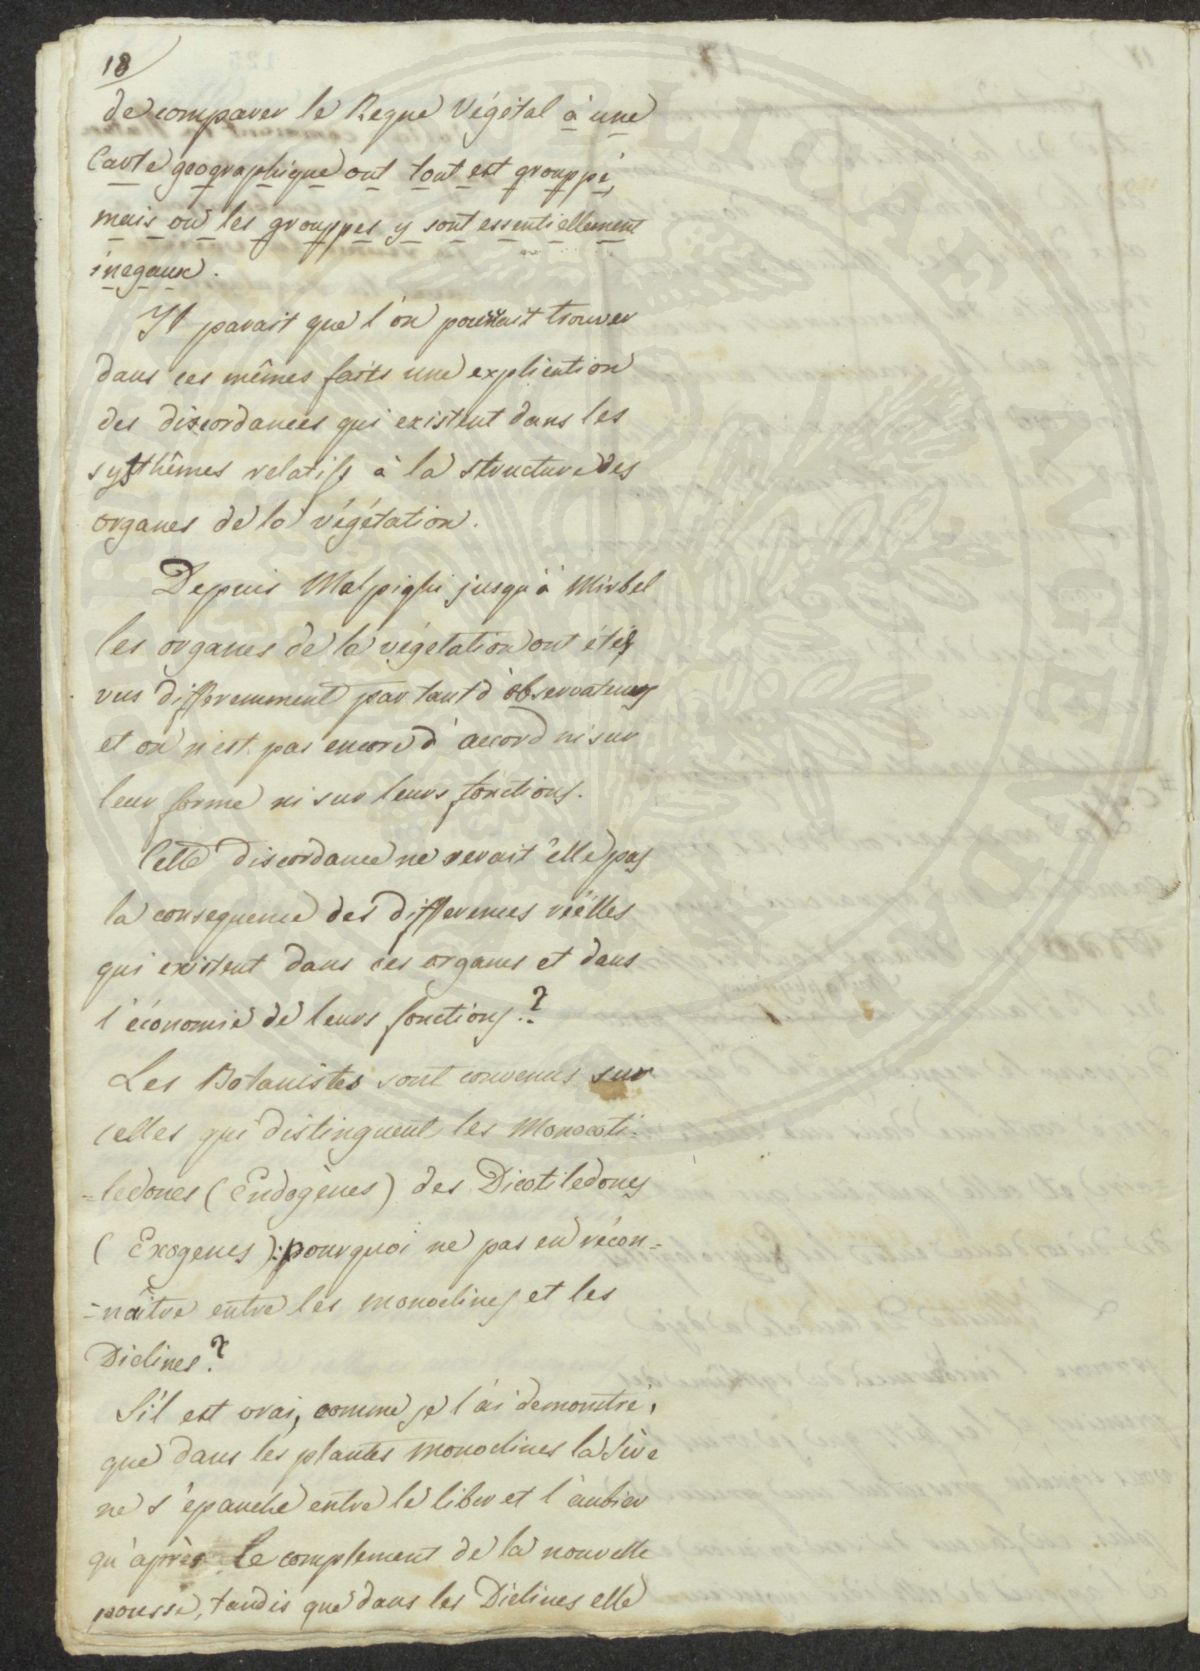 18
de comparer le Regne Végétal à une
Carte geographique ont tout est grouppé,
mais où les grouppes y sont essentiellement
inegaux.
Il parait que l'on pourrait trouver
dans ces mêmes faits une explication
des discordances qui existent dans les
systhêmes relatifs à la structure des
organes de la végétation.
Depuis Malpighi jusqu'à Mirbel
les organes de la végétation ont étés
vus differemment par tant d'observateurs
et on n'est pas encore d'accord ni sur
leur forme ni sur leurs fonctions.
Cette discordance ne serait elle pas
la consequence des differences réelles
qui existent dans ces organes et dans
l'économie de leurs fonctions.?
Les Botanistes sont convenus sur
celles qui distinguent les Monocoti-
=ledones (Endogènes) des Dicotiledones
(Exogenes): pourquoi ne pas en récon=
=naître entre les monoclines et les
Diclines?
S'il est vrai, comme je l'ai demontré,
que dans les plantes monoclines la Sève
ne s'epanche entre le liber et l'aubier
qu'après le complement de la nouvelle
pousse, tandis que dans les Diclines elle